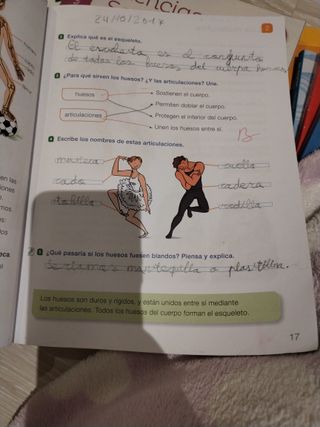 24/10/2017
2
Explica qué es el esqueleto.
El esqueleto es el conjunto
de todos los huesos del cuerpo humano
¿Para qué sirven los huesos? ¿Y las articulaciones? Une.
huesos
articulaciones
Sostienen el cuerpo.
Permiten doblar el cuerpo.
Protegen el interior del cuerpo.
Unen los huesos entre sí.
B
Escribe los nombres de estas articulaciones.
muñeca
codo
tobillo
cuello
cadera
rodilla
¿Qué pasaría si los huesos fuesen blandos? Piensa y explica.
mantequilla o plastilina.
Los huesos son duros y rígidos, y están unidos entre sí mediante
las articulaciones. Todos los huesos del cuerpo forman el esqueleto.
17